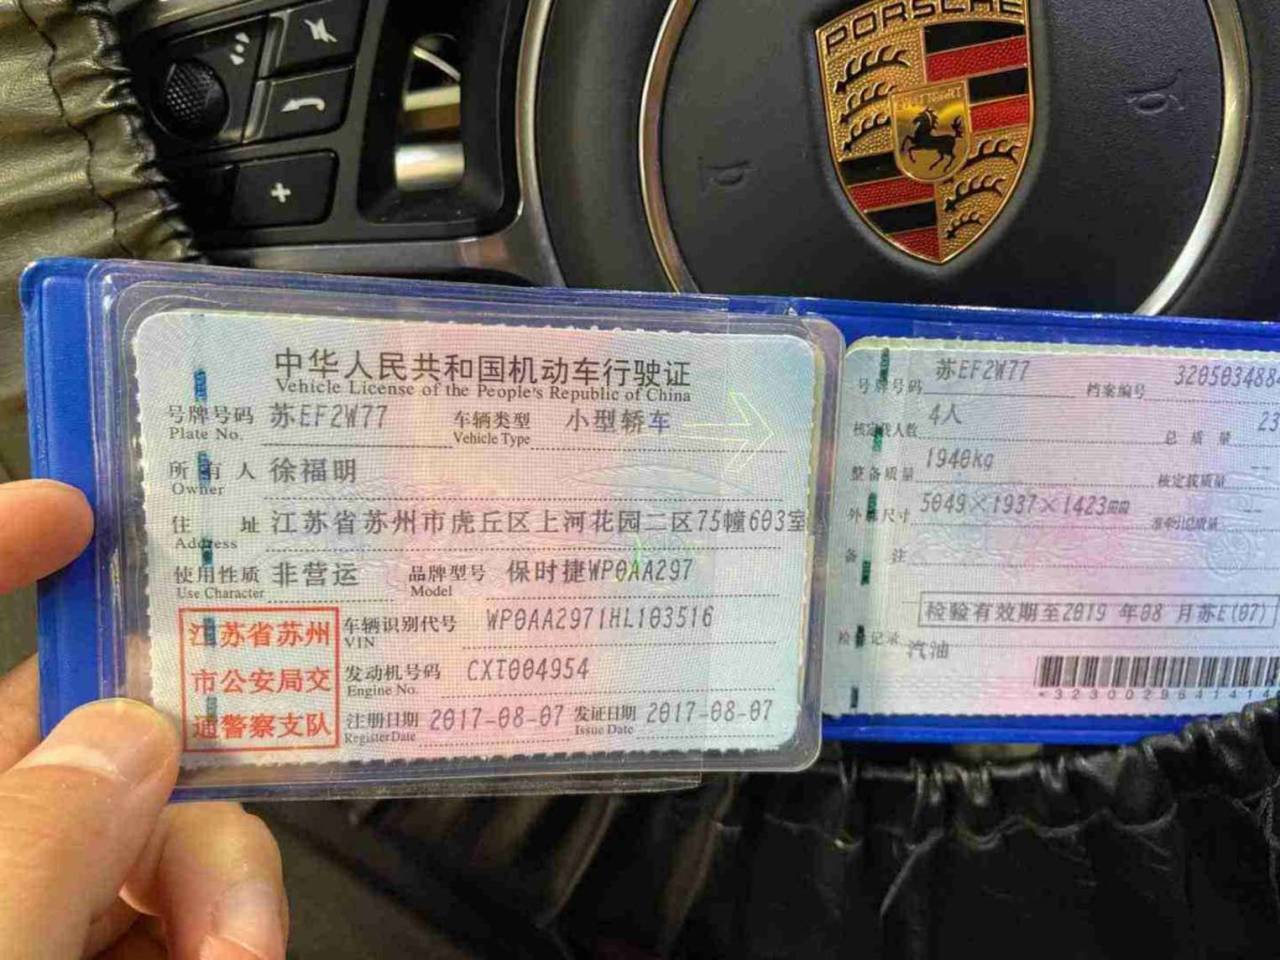 PORSCHE
STUTTGART
+
中华人民共和国机动车行驶证
Vehicle License of the People's Republic of China
号牌号码 苏EF2W77 车辆类型 小型轿车
Plate No. Vehicle Type
所有人 徐福明
Owner
住址 江苏省苏州市虎丘区上河花园二区75幢603室
Address
使用性质 非营运 品牌型号 保时捷WP0AA297
Use Character Model
江苏省苏州
市公安局交
通警察支队
车辆识别代号 WP0AA2971HL103516
VIN
发动机号码 CXT004954
Engine No.
注册日期 2017-08-07 发证日期 2017-08-07
Register Date Issue Date
号牌号码 苏EF2W77 档案编号 320503488
核定载人数 4人 总质量 23
整备质量 1940kg 核定载质量 --
外廓尺寸 5049×1937×1423mm 准牵引总质量 --
备注
检验有效期至2019 年08 月苏E(07)
检验记录
汽油
*3230029641414